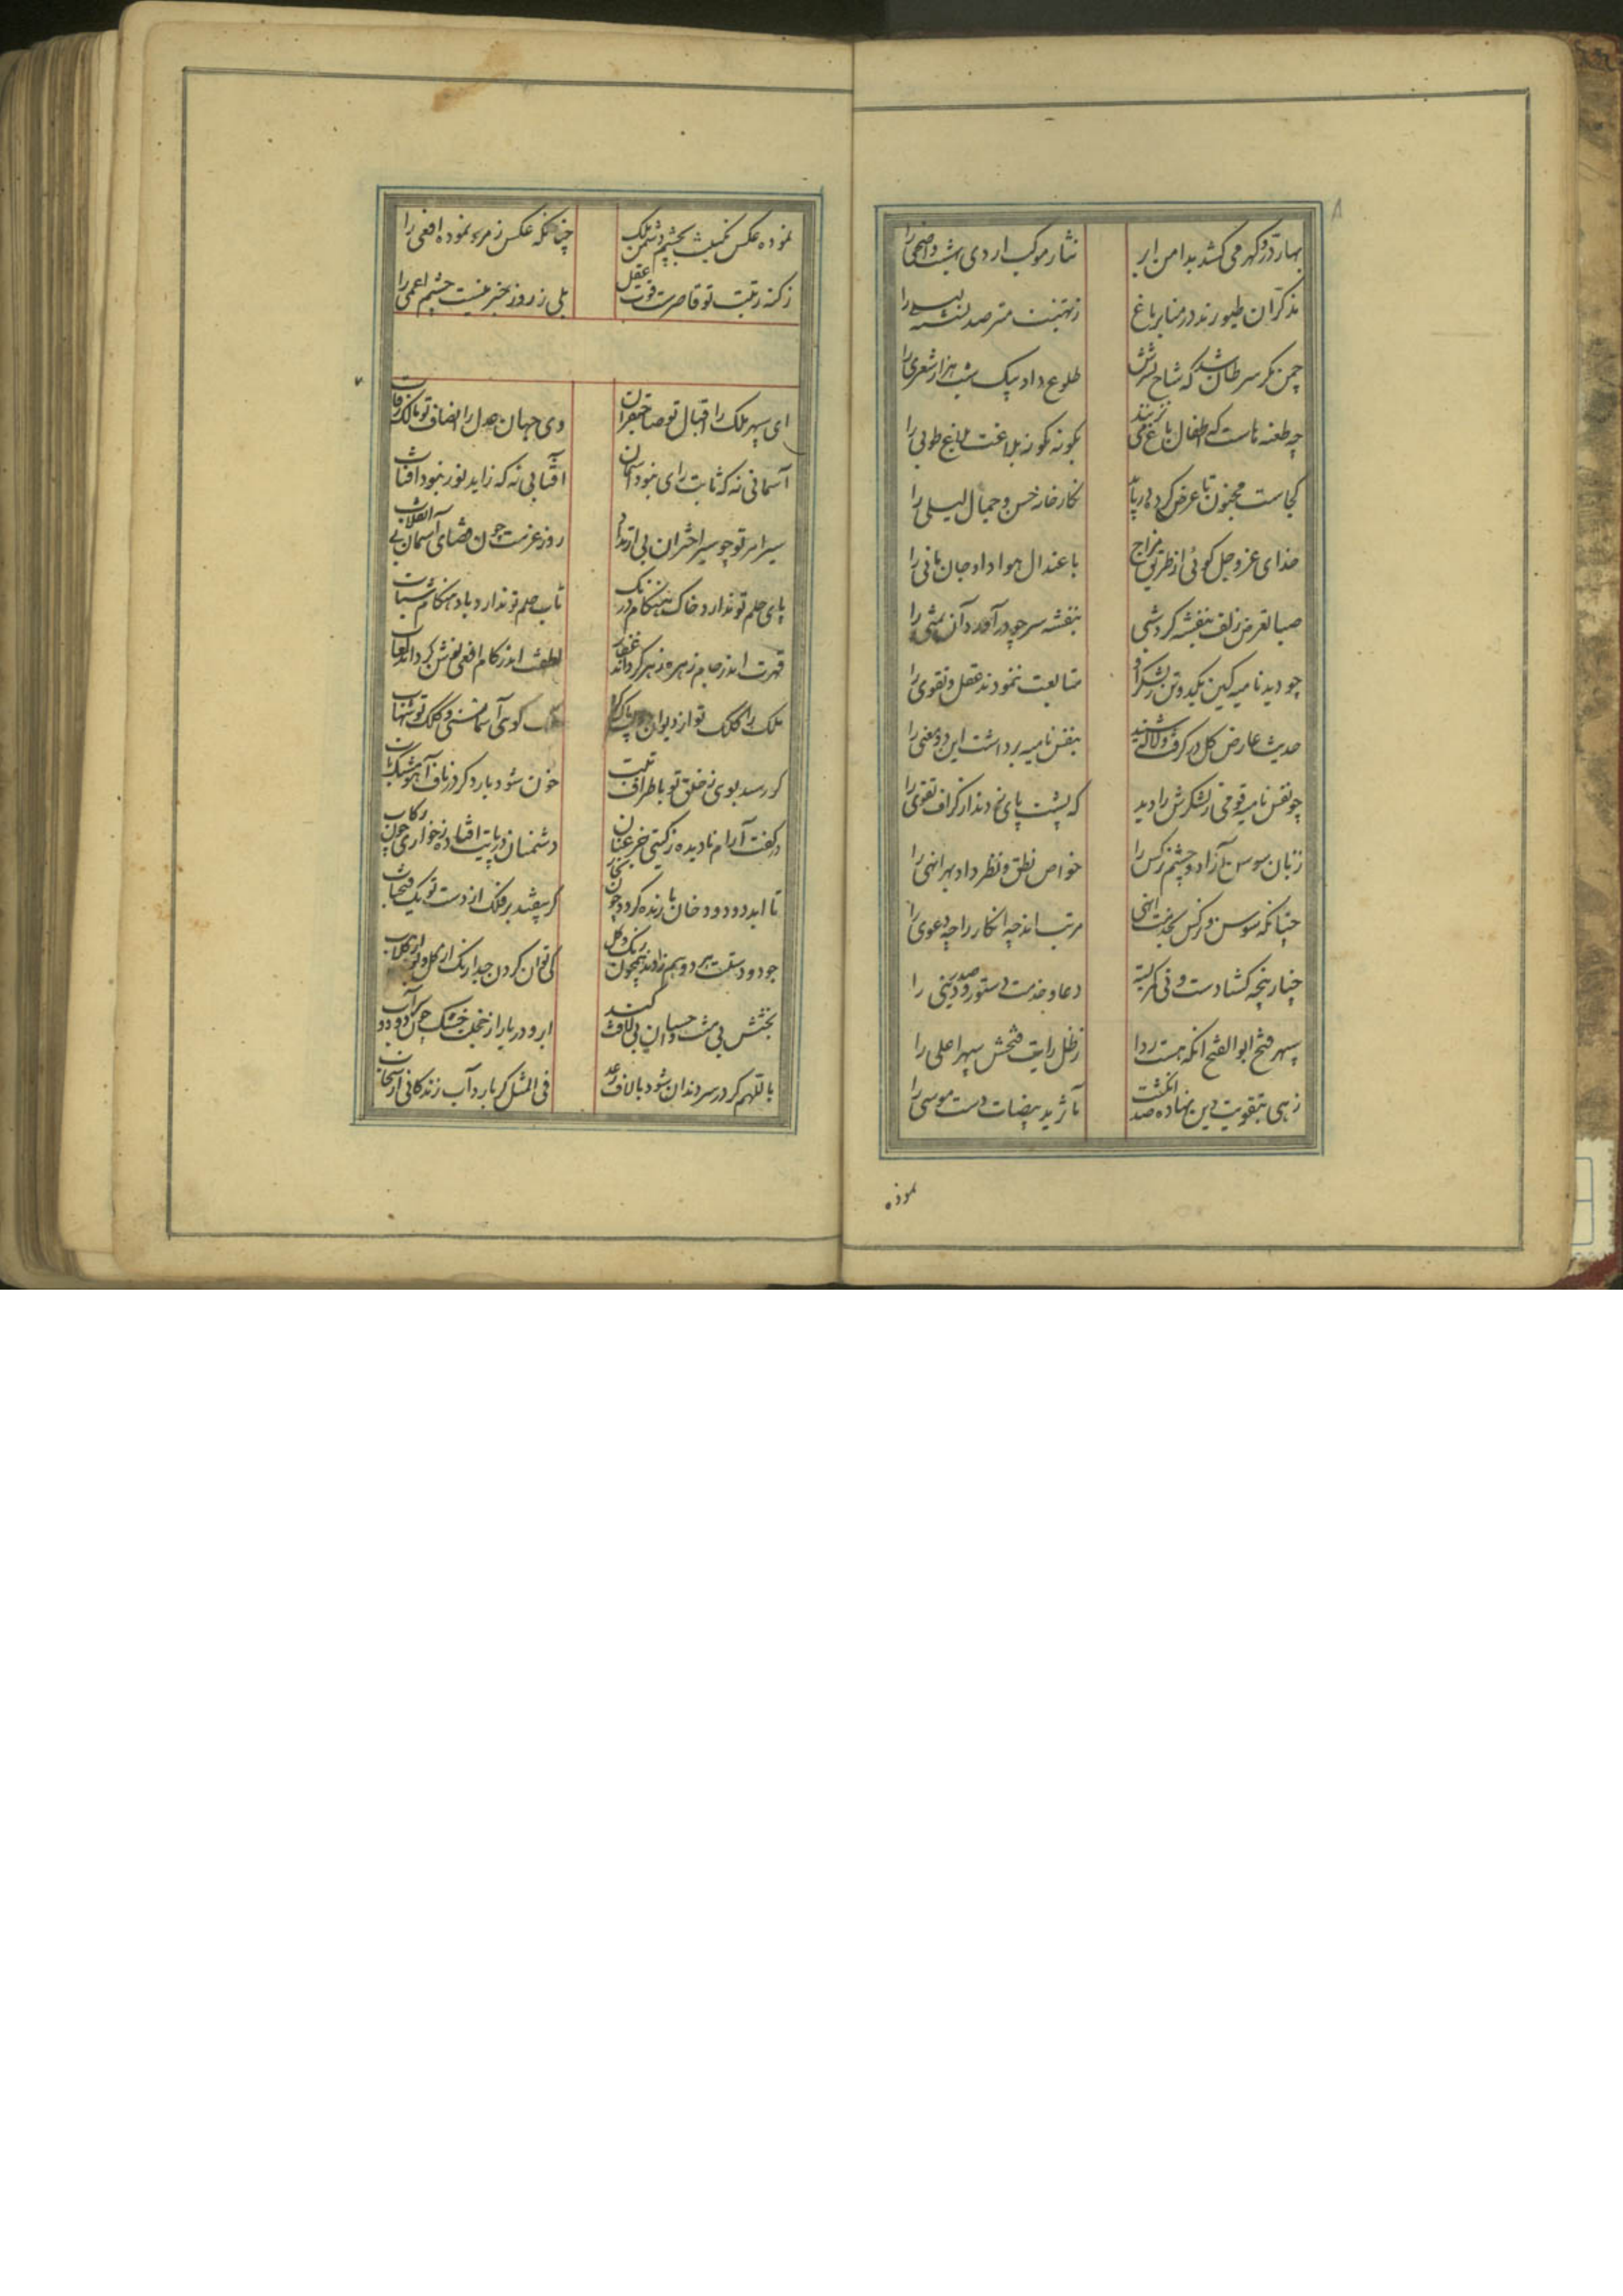 بهار در و گهر می کشد بدامن ابر
نثار موکب اردی بهشت و اضحی را
مذکران طیورند در منابر باغ
ز نهنیت مترصد نشسته
چمن مگر سرطان شد که شاخ نسترنش
طلوع داد بیک شب هزار شعری را
چه طعنه هاست که اطفال باغ می نزنند
بگونه گونه بلاغت بلاغ طوبی را
کجاست مجنون تا عرض کرده دریابد
نگارخانه حسن و جمال لیلی را
خدای عز و جل گوئی از طریق مزاج
باعتدال هوا داد جان مانی را
صبا تعرض زلف بنفشه کرد شبی
بنفشه سر چو درآورد آن تمنی را
چو دید نامیه کین یکدو تن ز لشکر او
متابعت ننمودند عقل و تقوی را
حدیث عارض گل در گرفت و لاله شنید
بنفس نامیه برداشت این دو معنی را
چو نفس نامیه قومی ز لشکرش را دید
که پشت پای زدند از گزاف تقوی را
زبان سوسن آزاد و چشم نرگس را
خواص نطق و نظر داد بهر انهی را
چنانکه سوسن و نرگس بخدمت انهی
مرتب اند چه انکار را چه دعوی را
چنار پنجه گشادست و نی کمر بسته
دعا و خدمت دستور و صدر دینی را
سپهر فتح ابوالفتح انکه هست ردا
ز ظل رایت فتحش سپهر اعلی را
زهی بتقویت دین نهاده صد انگشت
مآثر ید بیضات دست موسی را
نموده
نموده عکس نگینت بچشم دشمن ملک
چنانکه عکس زمرد نموده افعی را
ز کنه رتبت تو قاصرست قوت عقل
بلی ز روز خبر نیست چشم اعمی را
ای سپهر ملک را اقبال تو صاحبقران
وی جهان عدل را انصاف تو مالک رقاب
آسمانی نه که ثابت رای نبود آسمان
آفتابی نه که زاید نور نبود آفتاب
سیر امر تو چو سیر اختران بی ارتداد
روز عزمت چون قضای آسمان بی انقلاب
پای حلم تو ندارد خاک هنگام درنگ
تاب حکم تو ندارد باد هنگام شتاب
قهرت اندر جام زهره زهر گرداند عقار
لطفت اندر کام افعی نوش گرداند لعاب
ملک را کلک تو از دیوان
گوی آسمانستی و کلک تو شهاب
گر رسد بوی ز خلق تو باطراف تبت
خون شود بار دگر در ناف آهو مشک ناب
در کفت آرام نادیده ز گیتی جز عنان
دشمنان در پایت افتاده ز خواری چون رکاب
تا ابد دود و دخان بارنده گردد چون بخار
گر بیفتد بر فلک از دست تو یک فتح باب
جود و دستت هر دو همزادند همچون رنگ و گل
کی توان کردن جدا رنگ از گل و بو از گلاب
بخشش بی منت و احسان بی لافت کند
ابر و دریا را ز خجلت خشک چون دود و سراب
باللهم گر در سر دندان شود با لاف رعد
فی المثل گر بارد آب زندگانی از سحاب